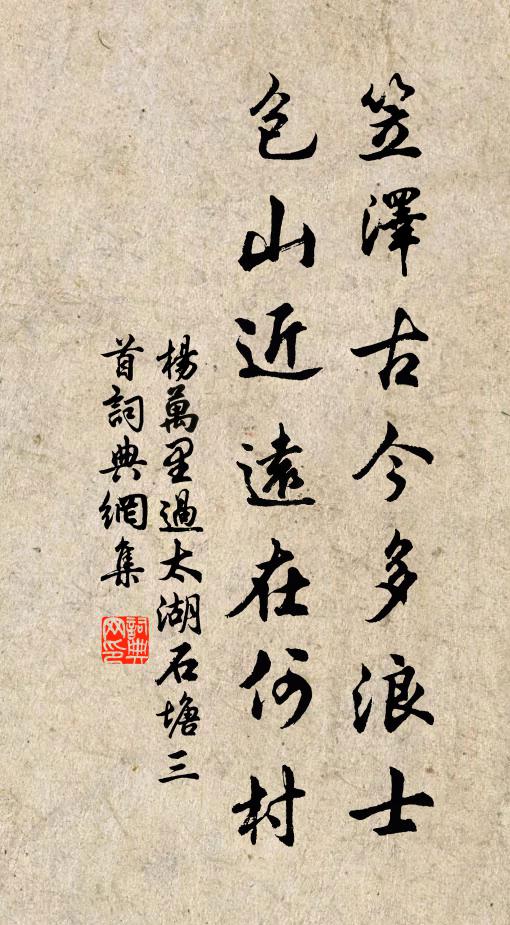 笠澤古今多浪士
包山近遠在何村
楊萬里過太湖石塘三
首詞典網集
詞典
网印